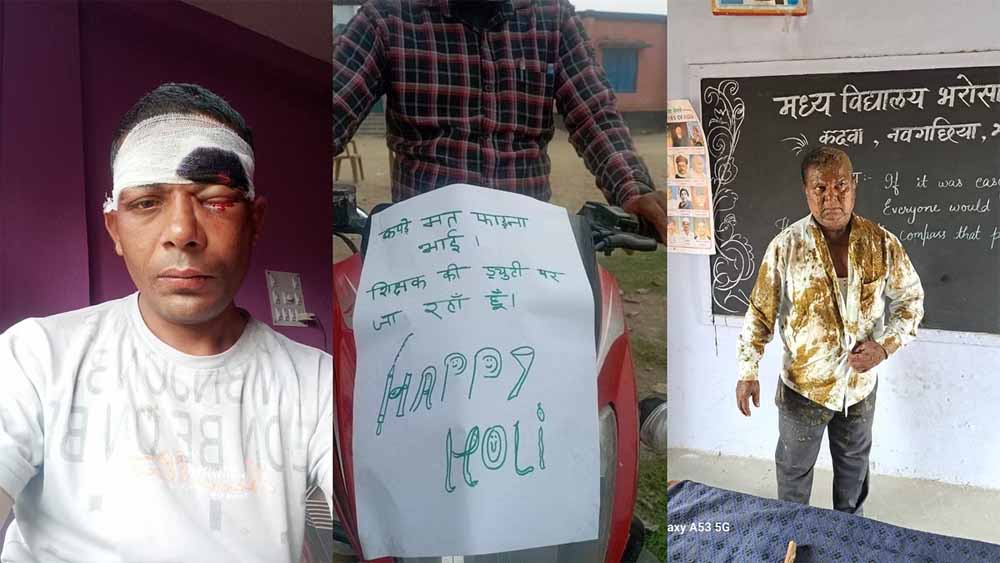 कपड़े मत फाड़ना
भाई।
शिक्षक की ड्युटी पर
जा रहाँ हूँ।
HAPPY
HOLi
मध्य विद्यालय भरोसा
कदवा, नवगछिया,
If it was
Everyone would
compass that
axy A53 5G